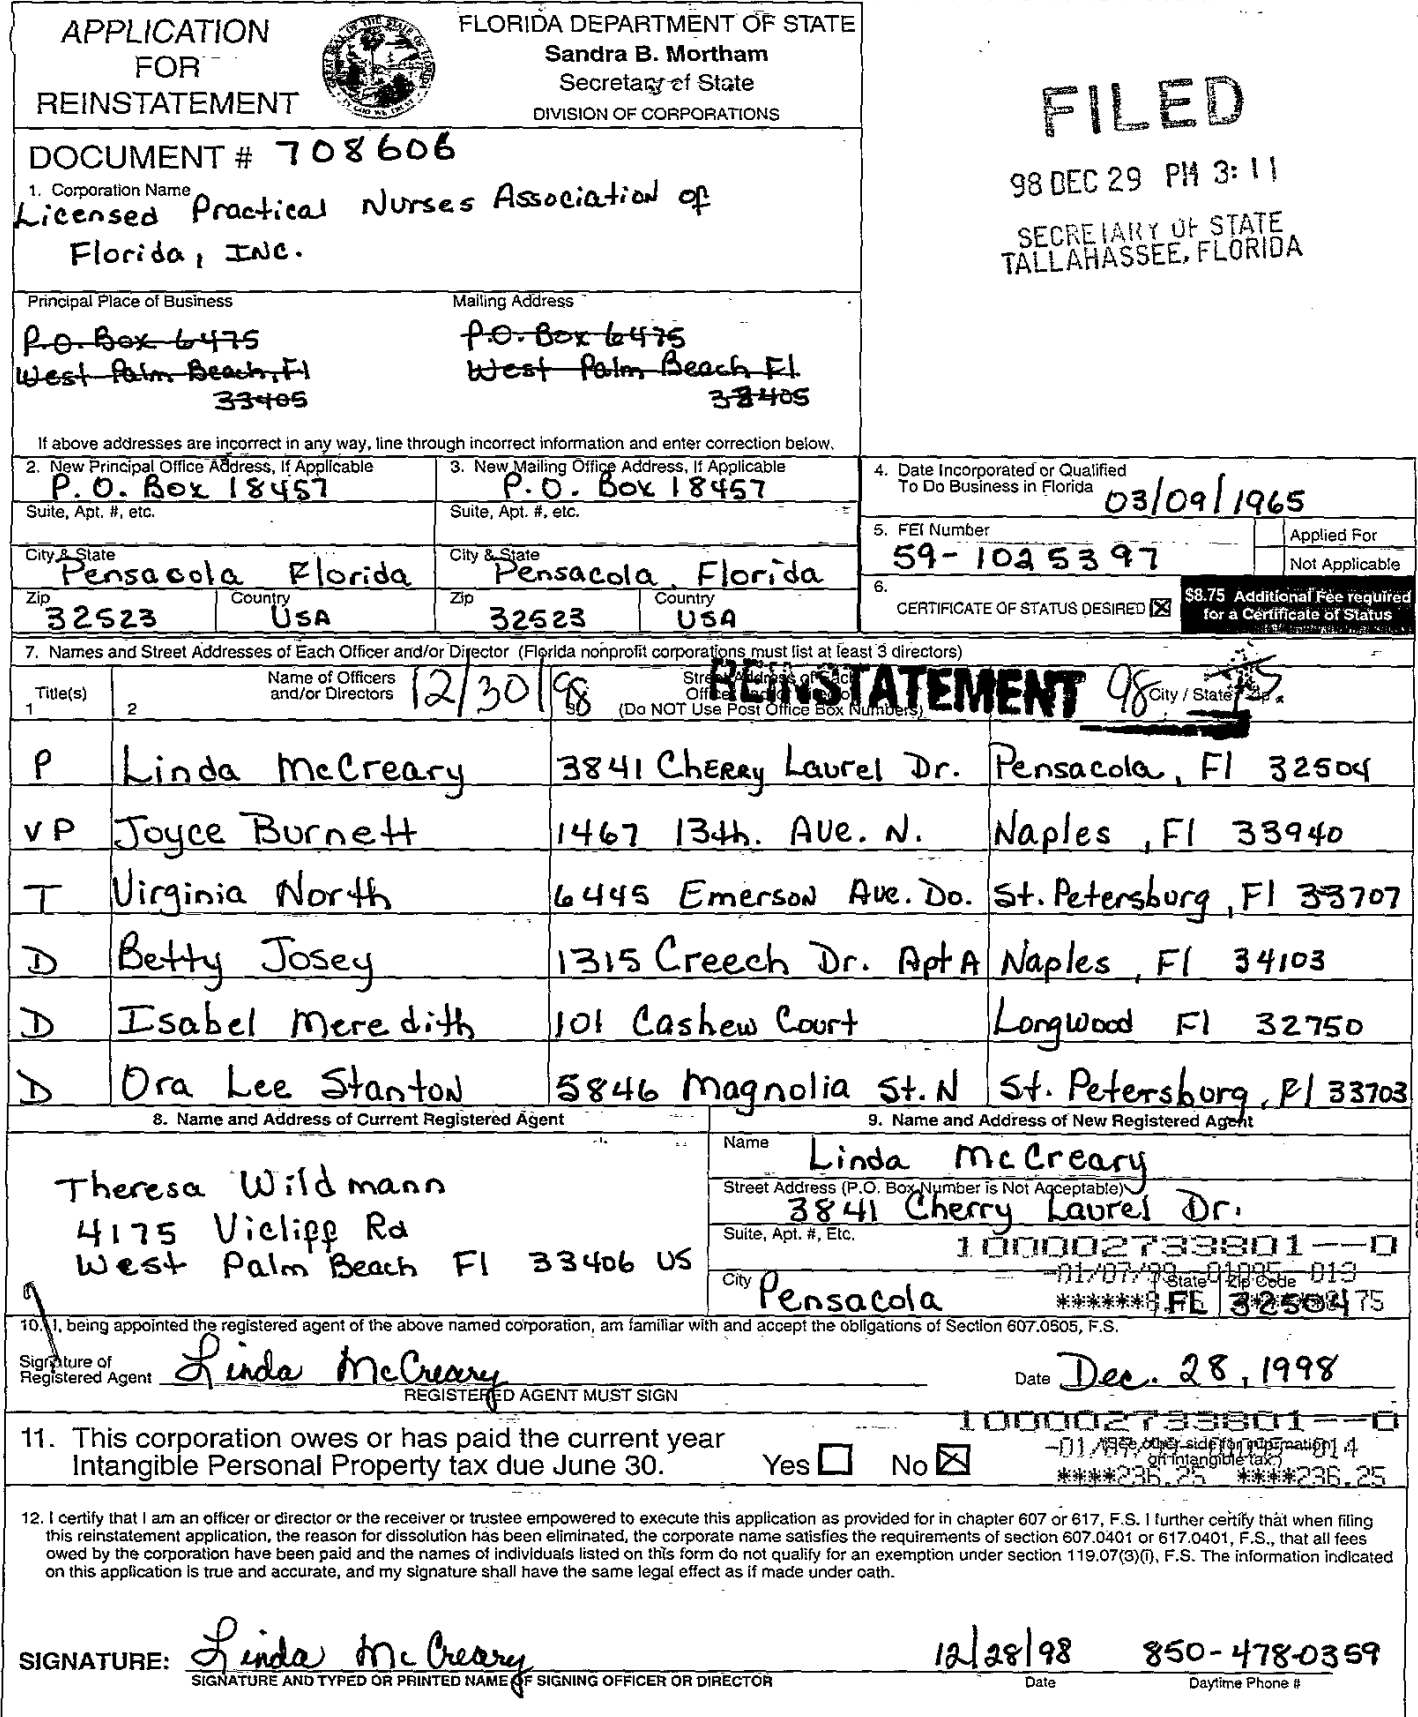 APPLICATION
FOR
REINSTATEMENT
FLORIDA DEPARTMENT OF STATE
Sandra B. Mortham
Secretary of State
DIVISION OF CORPORATIONS
FILED
98 DEC 29 PM 3:11
SECRETARY OF STATE
TALLAHASSEE, FLORIDA
DOCUMENT # 708606
1. Corporation Name
Licensed Practical Nurses Association of
Florida, INC.
Principal Place of Business
P.O. Box 6475
West Palm Beach, Fl
33405
Mailing Address
P.O. Box 6475
West Palm Beach Fl
33405
If above addresses are incorrect in any way, line through incorrect information and enter correction below.
2. New Principal Office Address, If Applicable
P.O. Box 18457
Suite, Apt. #, etc.
City & State
Pensacola Florida
Zip
32523
Country
USA
3. New Mailing Office Address, If Applicable
P.O. Box 18457
Suite, Apt. #, etc.
City & State
Pensacola, Florida
Zip
32523
Country
USA
4. Date Incorporated or Qualified
To Do Business in Florida 03/09/1965
5. FEI Number
59-1025397
Applied For
Not Applicable
6.
CERTIFICATE OF STATUS DESIRED
$8.75 Additional Fee required
for a Certificate of Status
7. Names and Street Addresses of Each Officer and/or Director (Florida nonprofit corporations must list at least 3 directors)
Title(s)
1
Name of Officers
and/or Directors
2
12/30/98
Street Address of Each
(Do NOT Use Post Office Box Numbers)
REINSTATEMENT 98
City / State
P Linda McCreary 3841 Cherry Laurel Dr. Pensacola, Fl 32504
VP Joyce Burnett 1467 13th. Ave. N. Naples, Fl 33940
T Virginia North 6445 Emerson Ave. Do. St. Petersburg, Fl 33707
D Betty Josey 1315 Creech Dr. Apt A Naples, Fl 34103
D Isabel Meredith 101 Cashew Court Longwood Fl 32750
D Ora Lee Stanton 5846 Magnolia St. N St. Petersburg, Fl 33703
8. Name and Address of Current Registered Agent
Theresa Wildmann
4175 Vicliff Rd
West Palm Beach Fl 33406 US
9. Name and Address of New Registered Agent
Name
Linda McCreary
Street Address (P.O. Box Number is Not Acceptable)
3841 Cherry Laurel Dr.
Suite, Apt. #, Etc.
100002733801--0
-01/07/99--01095--013
City
Pensacola
State
FL
Zip Code
32504
10. I, being appointed the registered agent of the above named corporation, am familiar with and accept the obligations of Section 607.0505, F.S.
Signature of
Registered Agent Linda McCreary
REGISTERED AGENT MUST SIGN
Date Dec. 28, 1998
100002733801--0
11. This corporation owes or has paid the current year
Intangible Personal Property tax due June 30.
Yes
No
(See other side for information
on intangible tax.)
****236.25 ****236.25
12. I certify that I am an officer or director or the receiver or trustee empowered to execute this application as provided for in chapter 607 or 617, F.S. I further certify that when filing
this reinstatement application, the reason for dissolution has been eliminated, the corporate name satisfies the requirements of section 607.0401 or 617.0401, F.S., that all fees
owed by the corporation have been paid and the names of individuals listed on this form do not qualify for an exemption under section 119.07(3)(i), F.S. The information indicated
on this application is true and accurate, and my signature shall have the same legal effect as if made under oath.
SIGNATURE: Linda McCreary
SIGNATURE AND TYPED OR PRINTED NAME OF SIGNING OFFICER OR DIRECTOR
12/28/98
Date
850-478-0359
Daytime Phone #